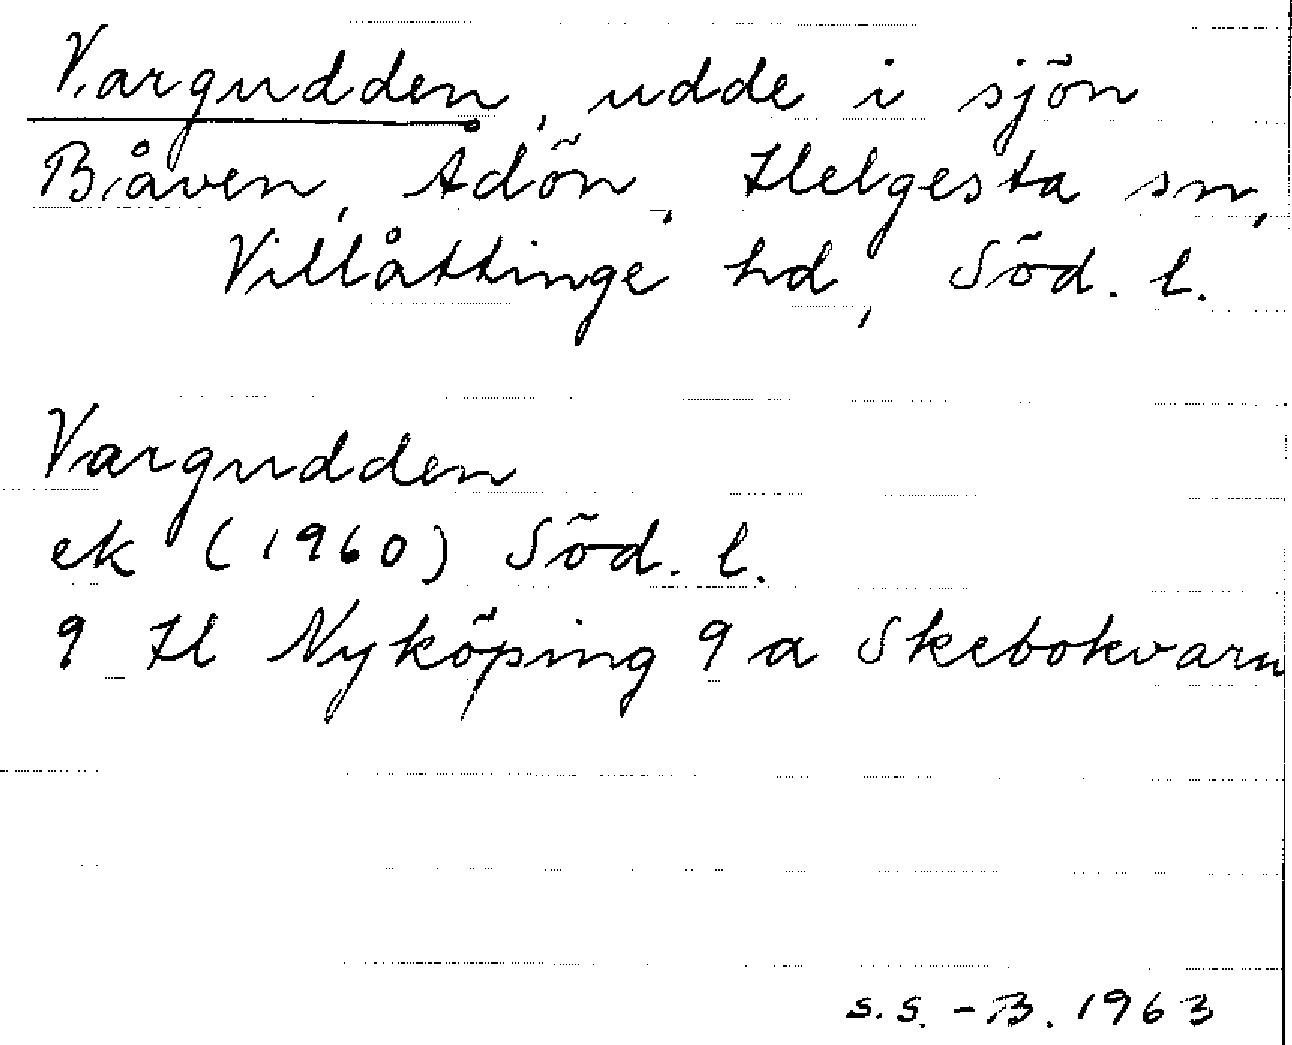 Vargudden, udde i sjön
Båven, Adön, Helgesta sn,
Villåttinge hd, Söd. l.
Vargudden
ek (1960) Söd. l.
9 H Nyköping 9 a Skebokvarn
S.S.-B. 1963